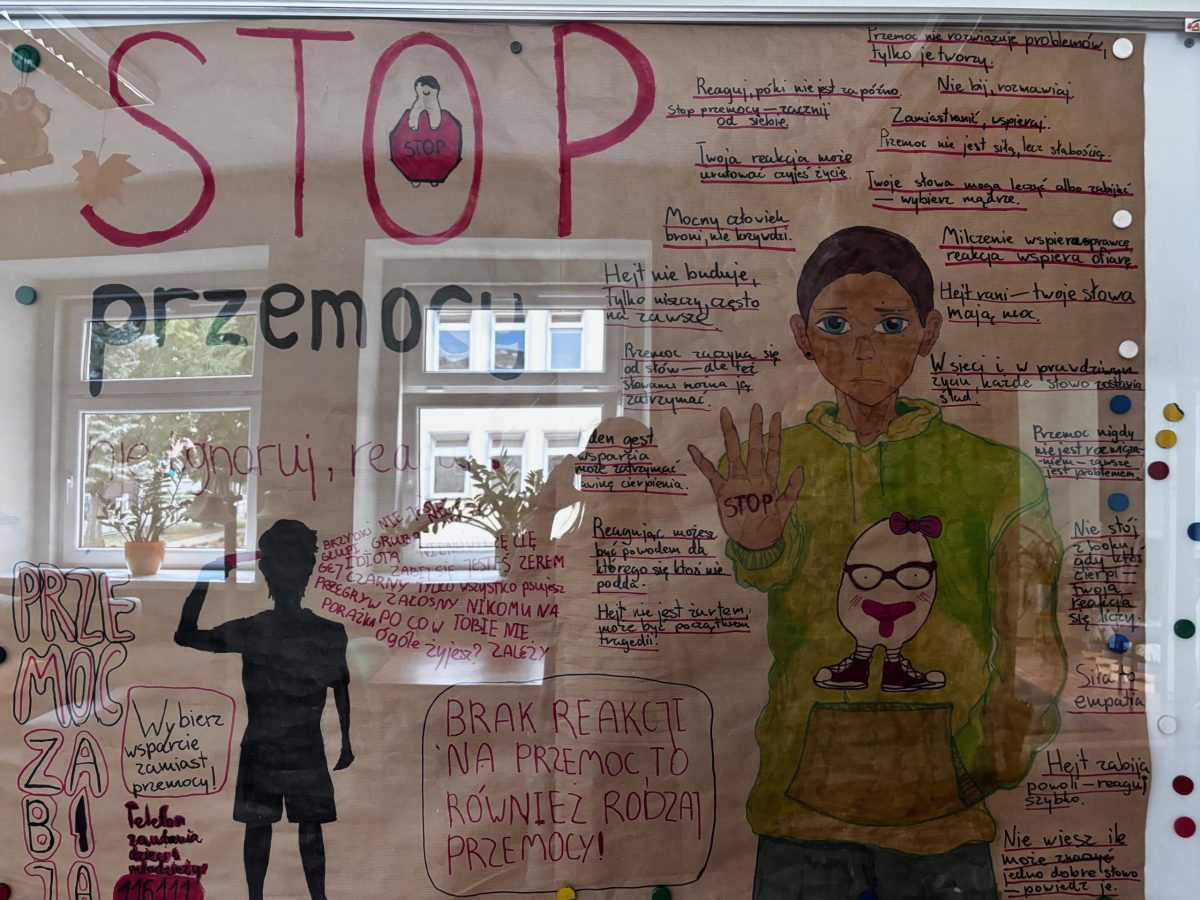 STOP
STOP
przemocy
nie ignoruj,
Przemoc nie rozwiązuje problemów,
tylko je tworzy.
Reaguj, póki nie jest za późno.
Nie bij, rozmawiaj.
Stop przemocy — zacznij
od siebie.
Zamiast ranić, wspieraj.
Przemoc nie jest siłą, lecz słabością.
Twoja reakcja może
uratować czyjeś życie.
Twoje słowa mogą leczyć albo zabijać
— wybierz mądrze.
Mocny człowiek
broni, nie krzywdzi.
Milczenie wspiera sprawcę,
reakcja wspiera ofiarę.
Hejt nie buduje,
tylko niszczy, często
na zawsze.
Hejt rani — twoje słowa
mają moc.
Przemoc zaczyna się
od słów — ale też
słowami można ją
zatrzymać.
W sieci i w prawdziwym
życiu, każde słowo zostawia
ślad.
gest
wsparcia
może zatrzymać
lawinę cierpienia.
Przemoc nigdy
nie jest rozwiąza-
-niem — zawsze
jest problemem.
STOP
Reagując możesz
być powodem dla
którego się ktoś nie
podda.
Nie stój
z boku,
gdy ktoś
cierpi —
twoja
reakcja
się liczy.
Hejt nie jest żartem,
może być początkiem
tragedii.
Siła to
empatia
Hejt zabija
powoli — reaguj
szybko.
Nie wiesz ile
może znaczyć
jedno dobre słowo
— powiedz je.
BRZYDKI NIE
GŁUPI GRUBA
IDIOTA CIĘ
GEJ ZABIJ SIĘ JESTEŚ ZEREM
CZARNY TYLKO WSZYSTKO psujesz
PRZEGRYW ŻAŁOSNY NIKOMU NA
PORAŻKA PO CO W TOBIE NIE
Ogóle żyjesz? ZALEŻY
PRZE
MOC
ZA
BI
JA
Wybierz
wsparcie
zamiast
przemocy!
Telefon
zaufania
dzieci i
młodzieży:
116111
BRAK REAKCJI
NA PRZEMOC, TO
RÓWNIEŻ RODZAJ
PRZEMOCY!